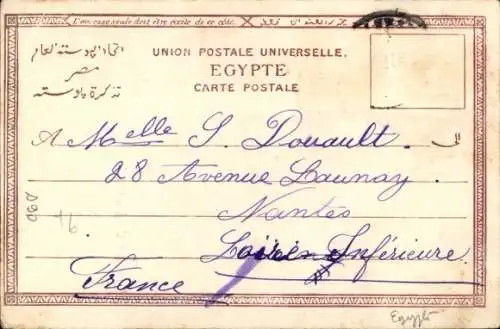 L'adresse seule doit être écrite de ce côté.
UNION POSTALE UNIVERSELLE.
EGYPTE
CARTE POSTALE
اتحاد البوسته العام
مصر
تذكرة بوسته
A Melle S. Douault.
الى
28 Avenue Launay
Nantes
Loire Inférieure.
France
Egypte